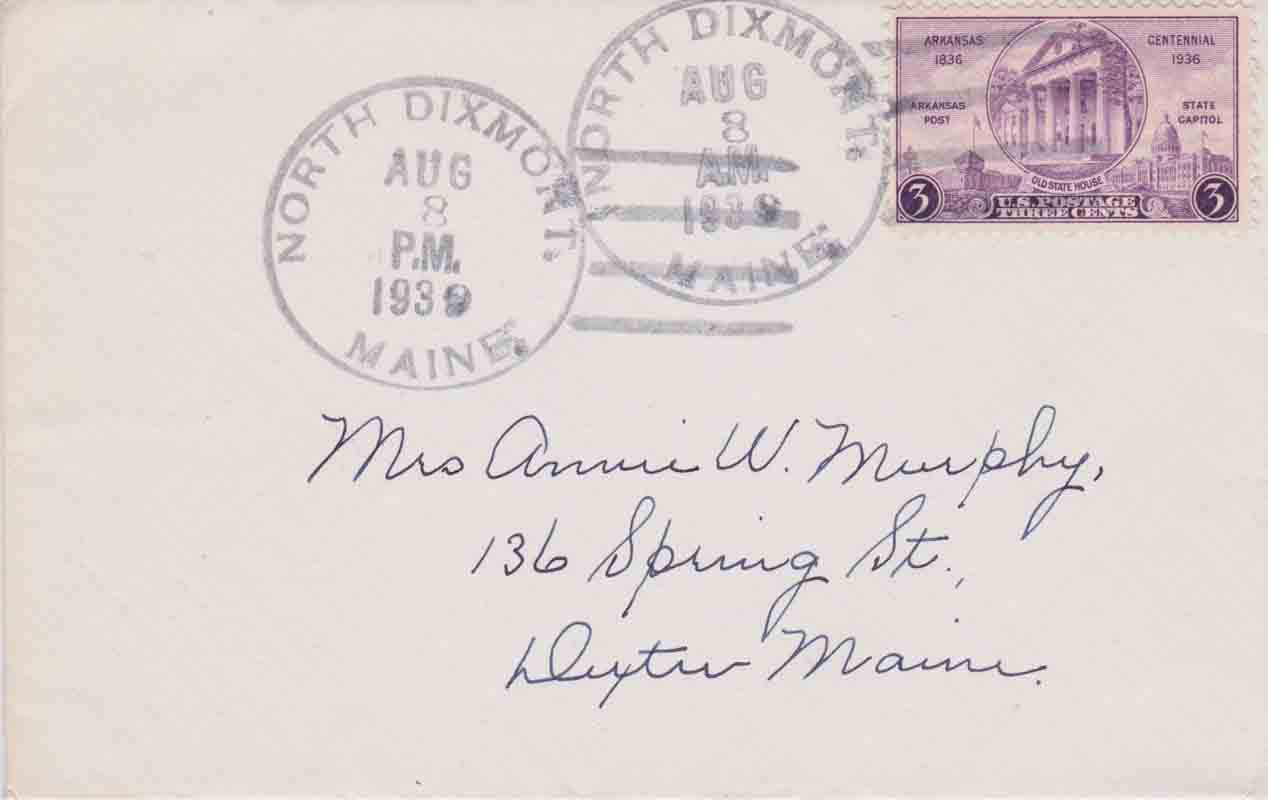 NORTH DIXMONT.
AUG
8
P.M.
1939
MAINE.
NORTH DIXMONT.
AUG
8
A.M.
1939
MAINE.
ARKANSAS
1836
CENTENNIAL
1936
ARKANSAS
POST
STATE
CAPITOL
OLD STATE HOUSE
3 U.S. POSTAGE 3
THREE CENTS
Mrs Annie W. Murphy,
136 Spring St.,
Dexter Maine.